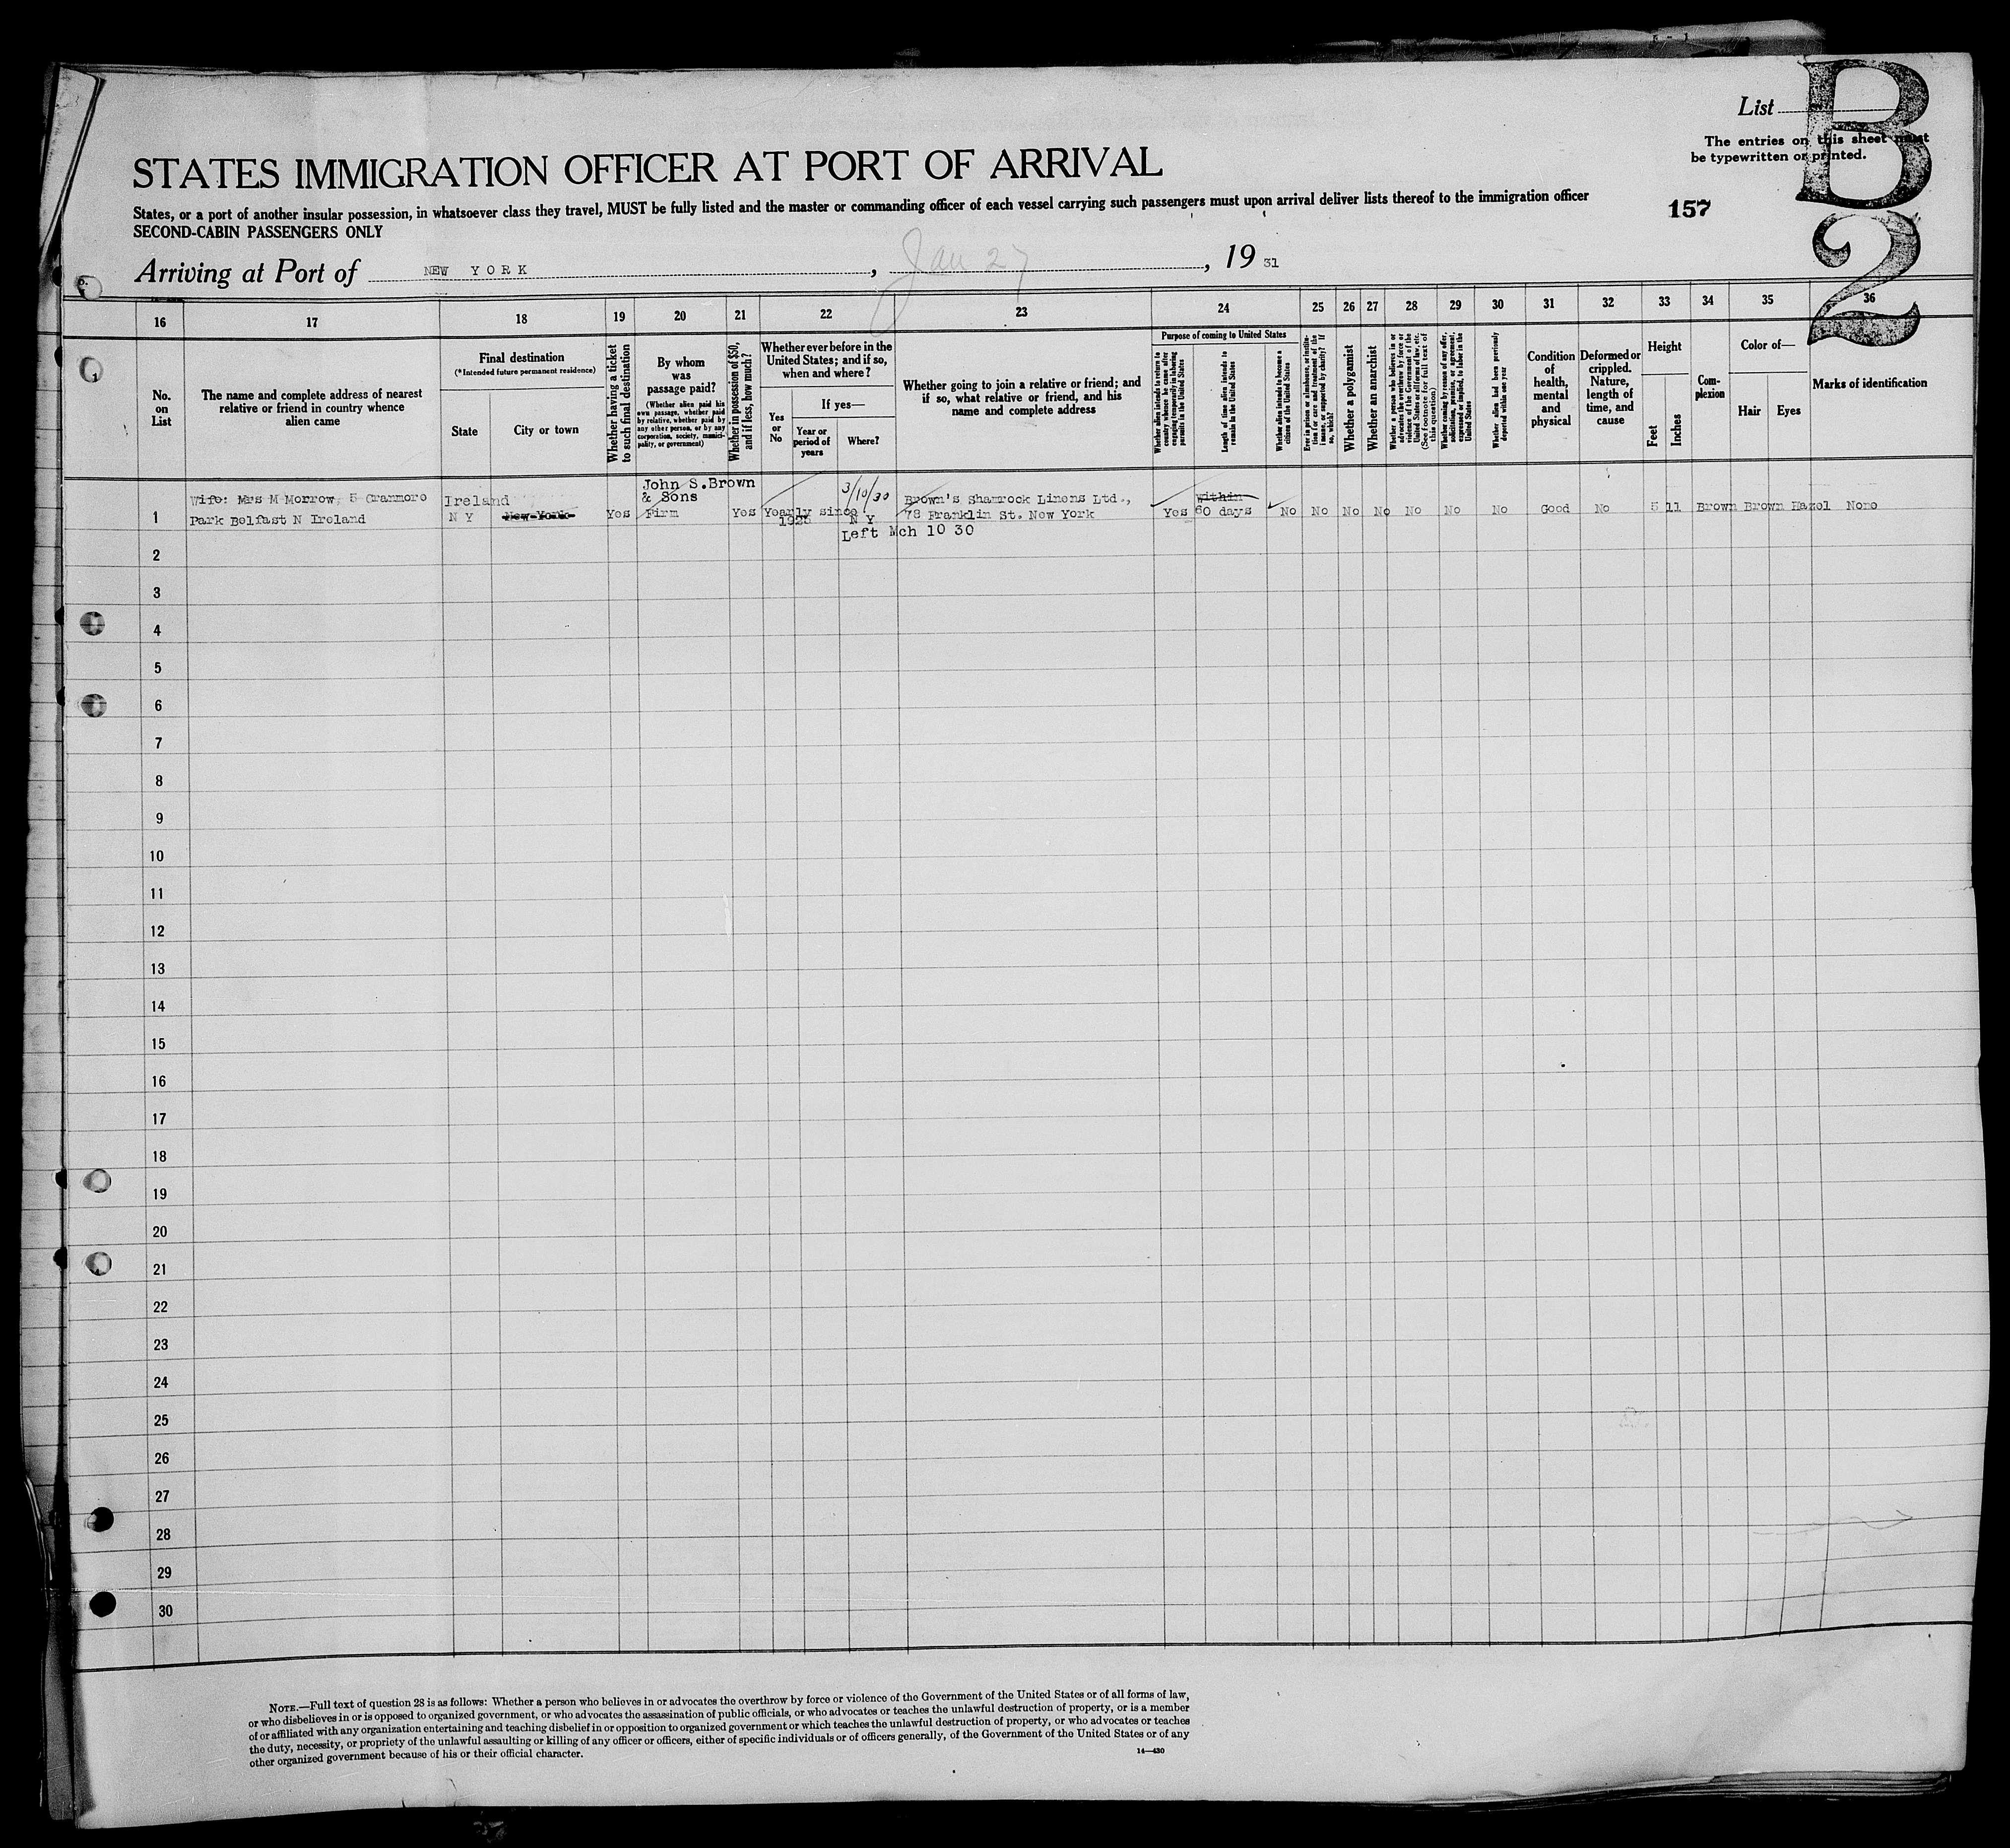 List
B
2
The entries on this sheet must
be typewritten or printed.
STATES IMMIGRATION OFFICER AT PORT OF ARRIVAL
States, or a port of another insular possession, in whatsoever class they travel, MUST be fully listed and the master or commanding officer of each vessel carrying such passengers must upon arrival deliver lists thereof to the immigration officer
157
SECOND-CABIN PASSENGERS ONLY
Arriving at Port of NEW YORK, Jan 27, 19 31
16 17 18 19 20 21 22 23 24 25 26 27 28 29 30 31 32 33 34 35 36
No.
on
List
The name and complete address of nearest
relative or friend in country whence
alien came
Final destination
(*Intended future permanent residence)
State
City or town
Whether having a ticket
to such final destination
By whom
was
passage paid?
(Whether alien paid his
own passage, whether paid
by relative, whether paid by
any other person, or by any
corporation, society, munici-
pality, or government)
Whether in possession of $50,
and if less, how much?
Whether ever before in the
United States; and if so,
when and where?
Yes
or
No
If yes—
Year or
period of
years
Where?
Whether going to join a relative or friend; and
if so, what relative or friend, and his
name and complete address
Purpose of coming to United States
Whether alien intends to return to
country whence he came after
engaging temporarily in laboring
pursuits in the United States
Length of time alien intends to
remain in the United States
Whether alien intends to become a
citizen of the United States
Ever in prison or almshouse, or institu-
tion for care and treatment of the
insane, or supported by charity? If
so, which?
Whether a polygamist
Whether an anarchist
Whether a person who believes in or
advocates the overthrow by force or
violence of the Government of the
United States or all forms of law, etc.
(See footnote for full text of
this question)
Whether coming by reason of any offer,
solicitation, promise, or agreement,
expressed or implied, to labor in the
United States
Whether alien had been previously
deported within one year
Condition
of
health,
mental
and
physical
Deformed or
crippled.
Nature,
length of
time, and
cause
Height
Feet
Inches
Com-
plexion
Color of—
Hair
Eyes
Marks of identification
John S. Brown
& Sons
3/10/30
Wife: Mrs M Morrow, 5 Cranmore Ireland Brown's Shamrock Linens Ltd., within
1 Park Belfast N Ireland N Y New York Yes Firm Yes Yearly since N Y 78 Franklin St. New York Yes 60 days No No No No No No No Good No 5 11 Brown Brown Hazel None
Left Mch 10 30
2
3
4
5
6
7
8
9
10
11
12
13
14
15
16
17
18
19
20
21
22
23
24
25
26
27
28
29
30
NOTE.—Full text of question 28 is as follows: Whether a person who believes in or advocates the overthrow by force or violence of the Government of the United States or of all forms of law,
or who disbelieves in or is opposed to organized government, or who advocates the assassination of public officials, or who advocates or teaches the unlawful destruction of property, or is a member
of or affiliated with any organization entertaining and teaching disbelief in or opposition to organized government or which teaches the unlawful destruction of property, or who advocates or teaches
the duty, necessity, or propriety of the unlawful assaulting or killing of any officer or officers, either of specific individuals or of officers generally, of the Government of the United States or of any
other organized government because of his or their official character.
14—430